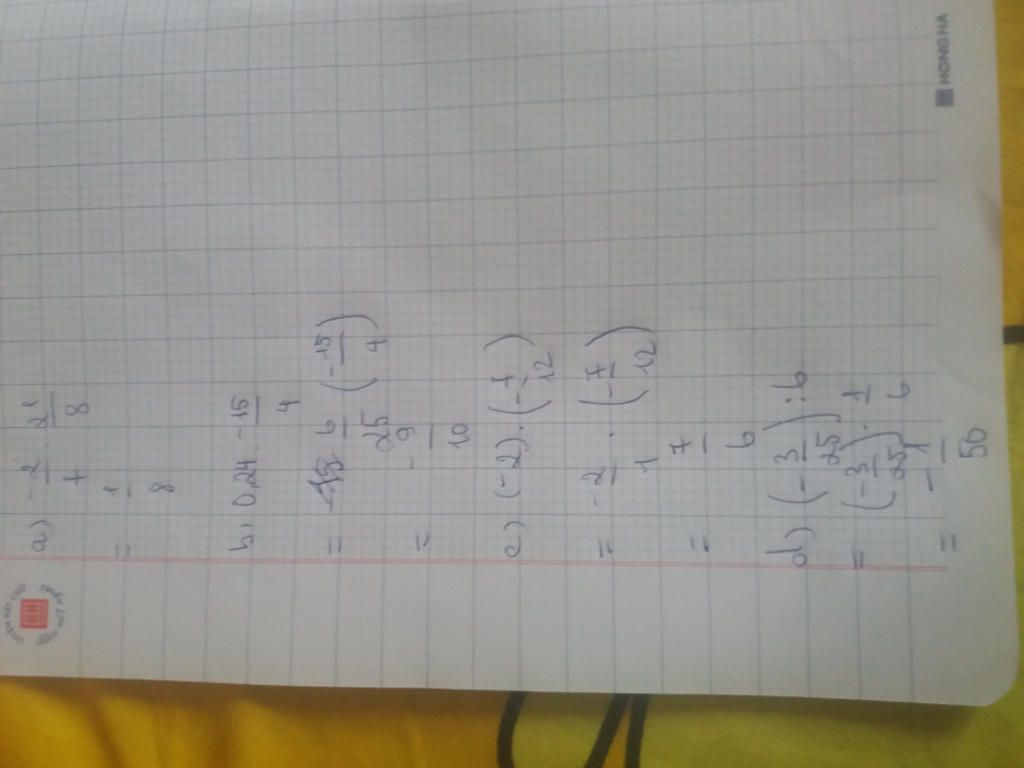 a) -2/7 . 21/8
= 1/8
b) 0,24 . -15/4
= 6/25 (-15/4)
= -9/10
c) (-2) . (-7/12)
= -2/1 . (-7/12)
= 7/6
d) (-3/25) : 6
= (-3/25) . 1/6
= -1/50
HONG HA